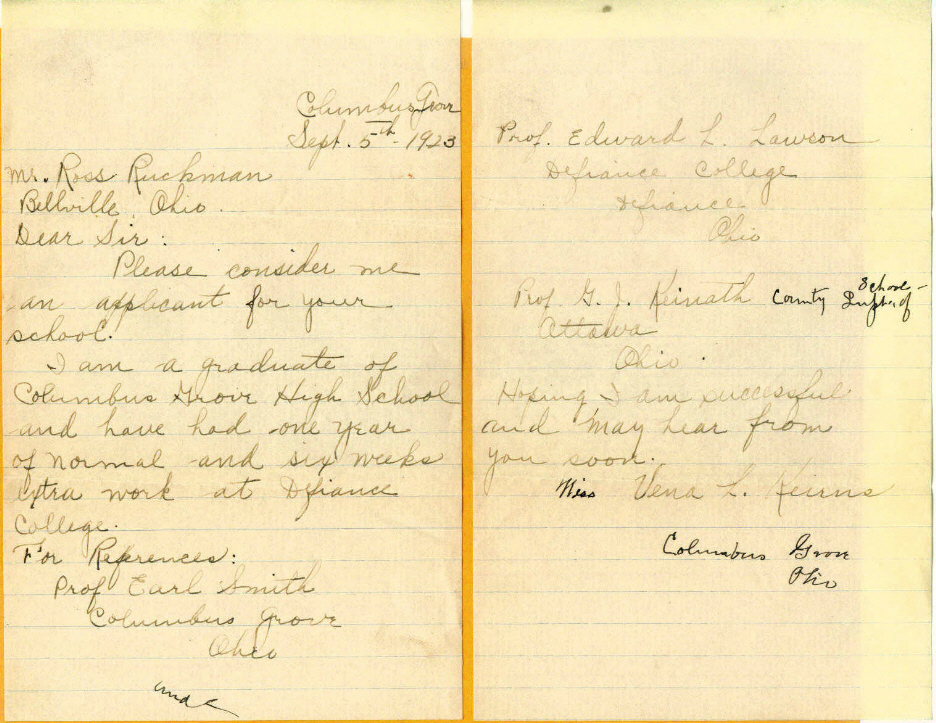 Columbus Grov
Sept. 5th - 1923
Mr. Ross Ruckman
Bellville, Ohio.
Dear Sir:
Please consider me
an applicant for your
school.
I am a graduate of
Columbus Grove High School
and have had one year
of normal and six weeks
extra work at Defiance
College.
For References:
Prof Earl Smith
Columbus Grove
Ohio
and
Prof. Edward L. Lawson
Defiance College
Defiance
Ohio
Prof. G. J. Keinath County School
Supt. of
Attawa
Ohio.
Hoping I am successful
and may hear from
you soon.
Miss Vena L. Keirns
Columbus Grove
Ohio